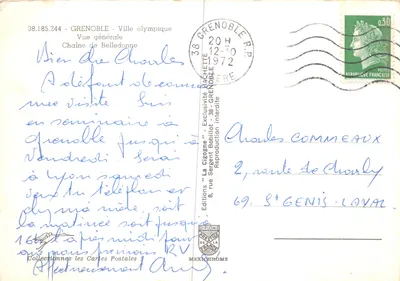 38.185.244 - GRENOBLE - Ville olympique
Vue générale
Chaîne de Belledonne
Bien cher Charles
A défaut de comme
une visite suis
en séminaire à
Grenoble jusqu'à
Vendredi Serai
à Lyon samedi
tu téléphon
mère, soit
la matinée soit jusqu'à
16h après midi pour
prenions RV
Affectueusement
Collectionnez les Cartes Postales
Editions "La Cigogne" - Exclusivité HACHETTE
8, rue Sergent Bobillot - 38 - GRENOBLE
Reproduction interdite
38 GRENOBLE R.P.
20H
12-10
1972
ISERE
0,30
REPUBLIQUE FRANÇAISE
Charles COMMEAUX
2, route de Charly
69. St GENIS-LAVAL